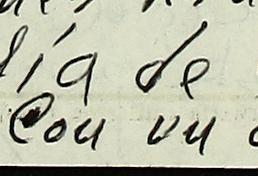 día de
Con un